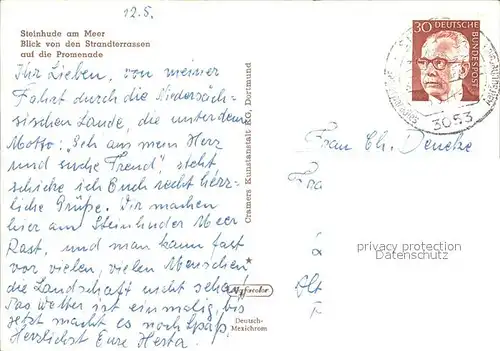 12.5.
Steinhude am Meer
Blick von den Strandterrassen
auf die Promenade
Ihr Lieben, von meiner
Fahrt durch die Niedersäch-
sischen Lande, die unter dem
Motto: "Geh aus mein Herz
und suche Freud", steht
schicke ich Euch recht herz-
liche Grüße. Wir machen
hier am Steinhuder Meer
Rast, und man kann fast
vor vielen, vielen Menschen
die Landschaft nicht sehen.
Das Wetter ist einmalig, bis
jetzt macht es noch Spaß.
Herzlichst Eure Herta.
Cramers Kunstanstalt KG, Dortmund
Deutsch-
Mexichrom
30 DEUTSCHE BUNDESPOST
3053
Frau Ch. Deneke
Fra
privacy protection
Datenschutz